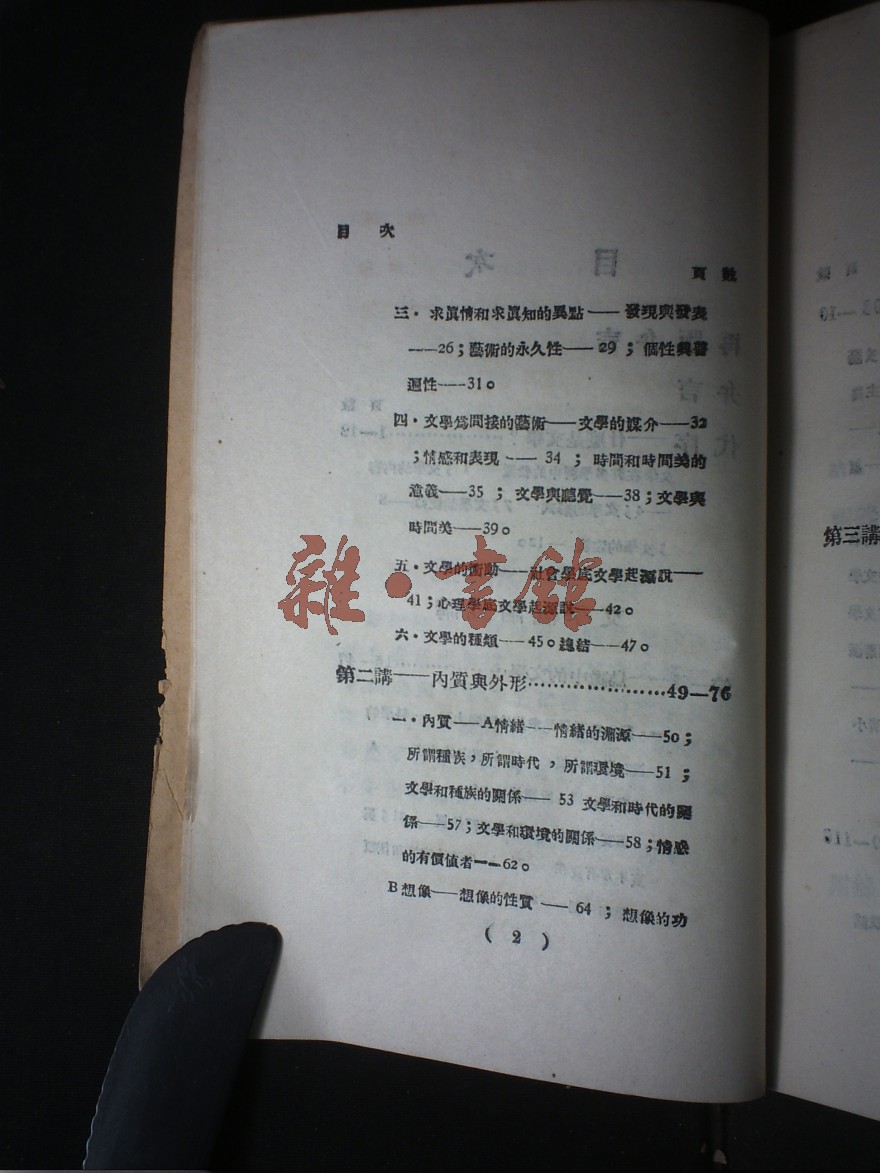 目次
頁數
三·求眞情和求眞知的異點——發現與發表
——26；藝術的永久性——29；個性與普
遍性——31。
四·文學爲間接的藝術——文學的媒介——32
；情感和表現——34；時間和時間美的
意義——35；文學與聽覺——38；文學與
時間美——39。
五·文學的衝動——社會學底文學起源說——
41；心理學底文學起源說——42。
六·文學的種類——45。總結——47。
雜·書館
第二講——內質與外形…………………49—76
一·內質——A情緒——情緒的淵源——50；
所謂種族，所謂時代，所謂環境——51；
文學和種族的關係——53 文學和時代的關
係——57；文學和環境的關係——58；情感
的有價値者——62。
B想像——想像的性質——64；想像的功
(2)
第三講